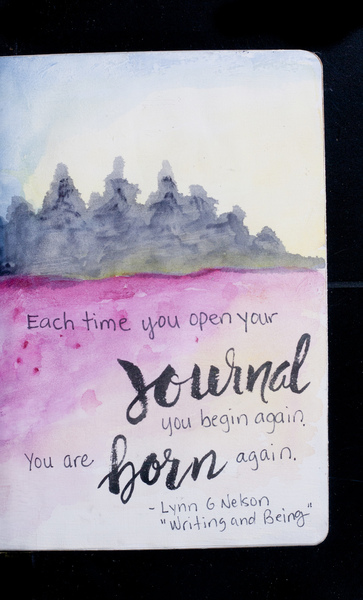 Each time you open your
Journal
you begin again.
You are born again.
- Lynn G Nelson
"Writing and Being"